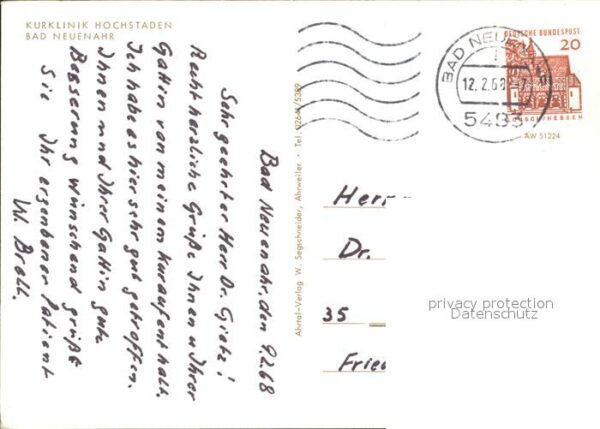 KURKLINIK HOCHSTADEN
BAD NEUENAHR
Bad Neuenahr, den 9.2.68
Sehr geehrter Herr Dr. Gietz!
Recht herzliche Grüße Ihnen u Ihrer
Gattin von meinem Kuraufenthalt.
Ich habe es hier sehr gut getroffen.
Ihnen und Ihrer Gattin gute
Besserung wünschend grüßt
Sie Ihr ergebener Patient
W. Brell.
Ahrtal-Verlag W. Segschneider, Ahrweiler · Tel. 02641/5389
DEUTSCHE BUNDESPOST
20
BAD NEUEN
12.2.68
5483
AW 51224
Herr
Dr.
35
Frie
privacy protection
Datenschutz